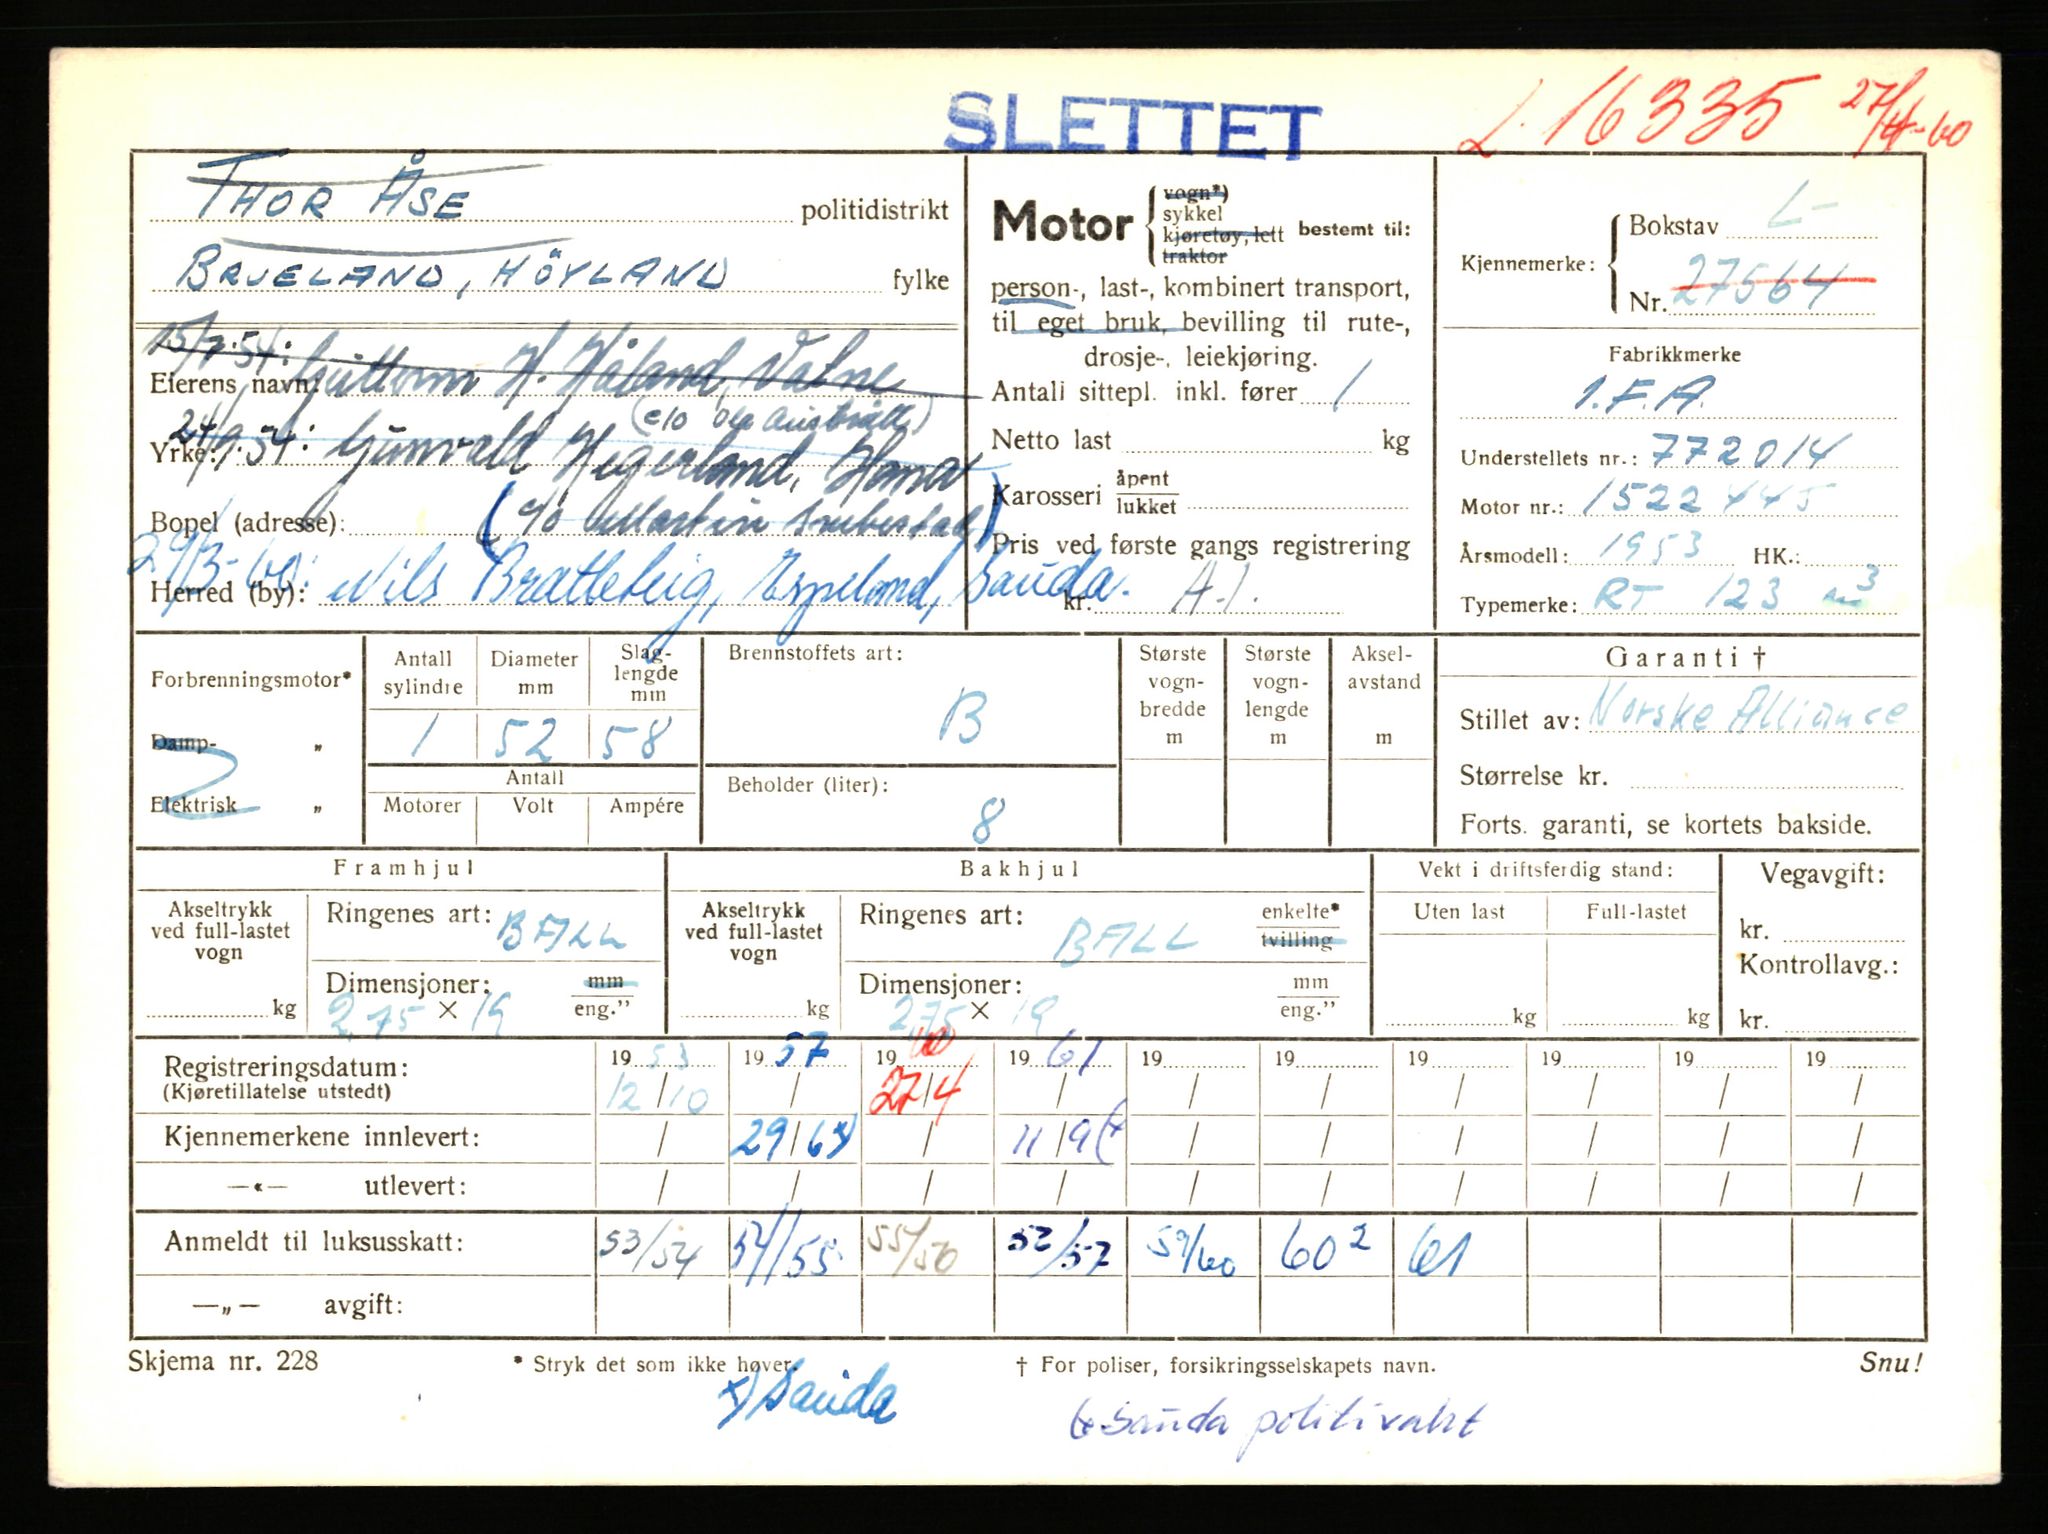 SLETTET
L. 16335 27/4-60
THOR ÅSE politidistrikt
BRUELAND, HÖYLAND fylke
15/7.54: Guttorm H. Håland, Varne
Eierens navn:
(c/o Ole Austrått)
24/9 54: Gunvald Hegerland, Hana
Yrke:
Bopel (adresse): (c/o Martin
29/3-60: Nils Brattebeig, Espeland, Sauda.
Herred (by):
Motor vogn*) sykkel kjøretøy, lett traktor bestemt til:
person-, last-, kombinert transport,
til eget bruk, bevilling til rute-,
drosje-, leiekjøring.
Antall sittepl. inkl. fører 1
Netto last kg
Karosseri åpent lukket
Pris ved første gangs registrering
kr. A.1.
Kjennemerke: Bokstav L-
Nr. 27564
Fabrikkmerke
I.F.A.
Understellets nr.: 772014
Motor nr.: 1522445
Årsmodell: 1953 HK.:
Typemerke: RT 123 m3
Forbrenningsmotor*
Damp- „
Elektrisk „
Antall sylindre Diameter mm Slag-lengde mm
1 52 58
Antall
Motorer Volt Ampére
Brennstoffets art:
B
Beholder (liter):
8
Største vogn-bredde m
Største vogn-lengde m
Aksel-avstand m
Garanti †
Stillet av: Norske Alliance
Størrelse kr.
Forts. garanti, se kortets bakside.
Framhjul
Akseltrykk ved full-lastet vogn
kg
Ringenes art: BALL
Dimensjoner: mm
2,75 × 19 eng.”
Bakhjul
Akseltrykk ved full-lastet vogn
kg
Ringenes art: BALL enkelte* tvilling
Dimensjoner: mm
2,75 × 19 eng.”
Vekt i driftsferdig stand:
Uten last Full-lastet
kg kg
Vegavgift:
kr.
Kontrollavg.:
kr.
Registreringsdatum: 1953 1957 1960 1961 19 19 19 19 19 19
(Kjøretillatelse utstedt) 12/10 / 27/4 / / / / / / /
Kjennemerkene innlevert: / 29/6 x) / 11/9 (x / / / / / /
—«— utlevert: / / / / / / / / / /
Anmeldt til luksusskatt: 53/54 54/55 55/56 52/57 59/60 60² 61
—„— avgift:
Skjema nr. 228 * Stryk det som ikke høver. † For poliser, forsikringsselskapets navn. Snu!
x) Sauda
(x Sauda politivakt